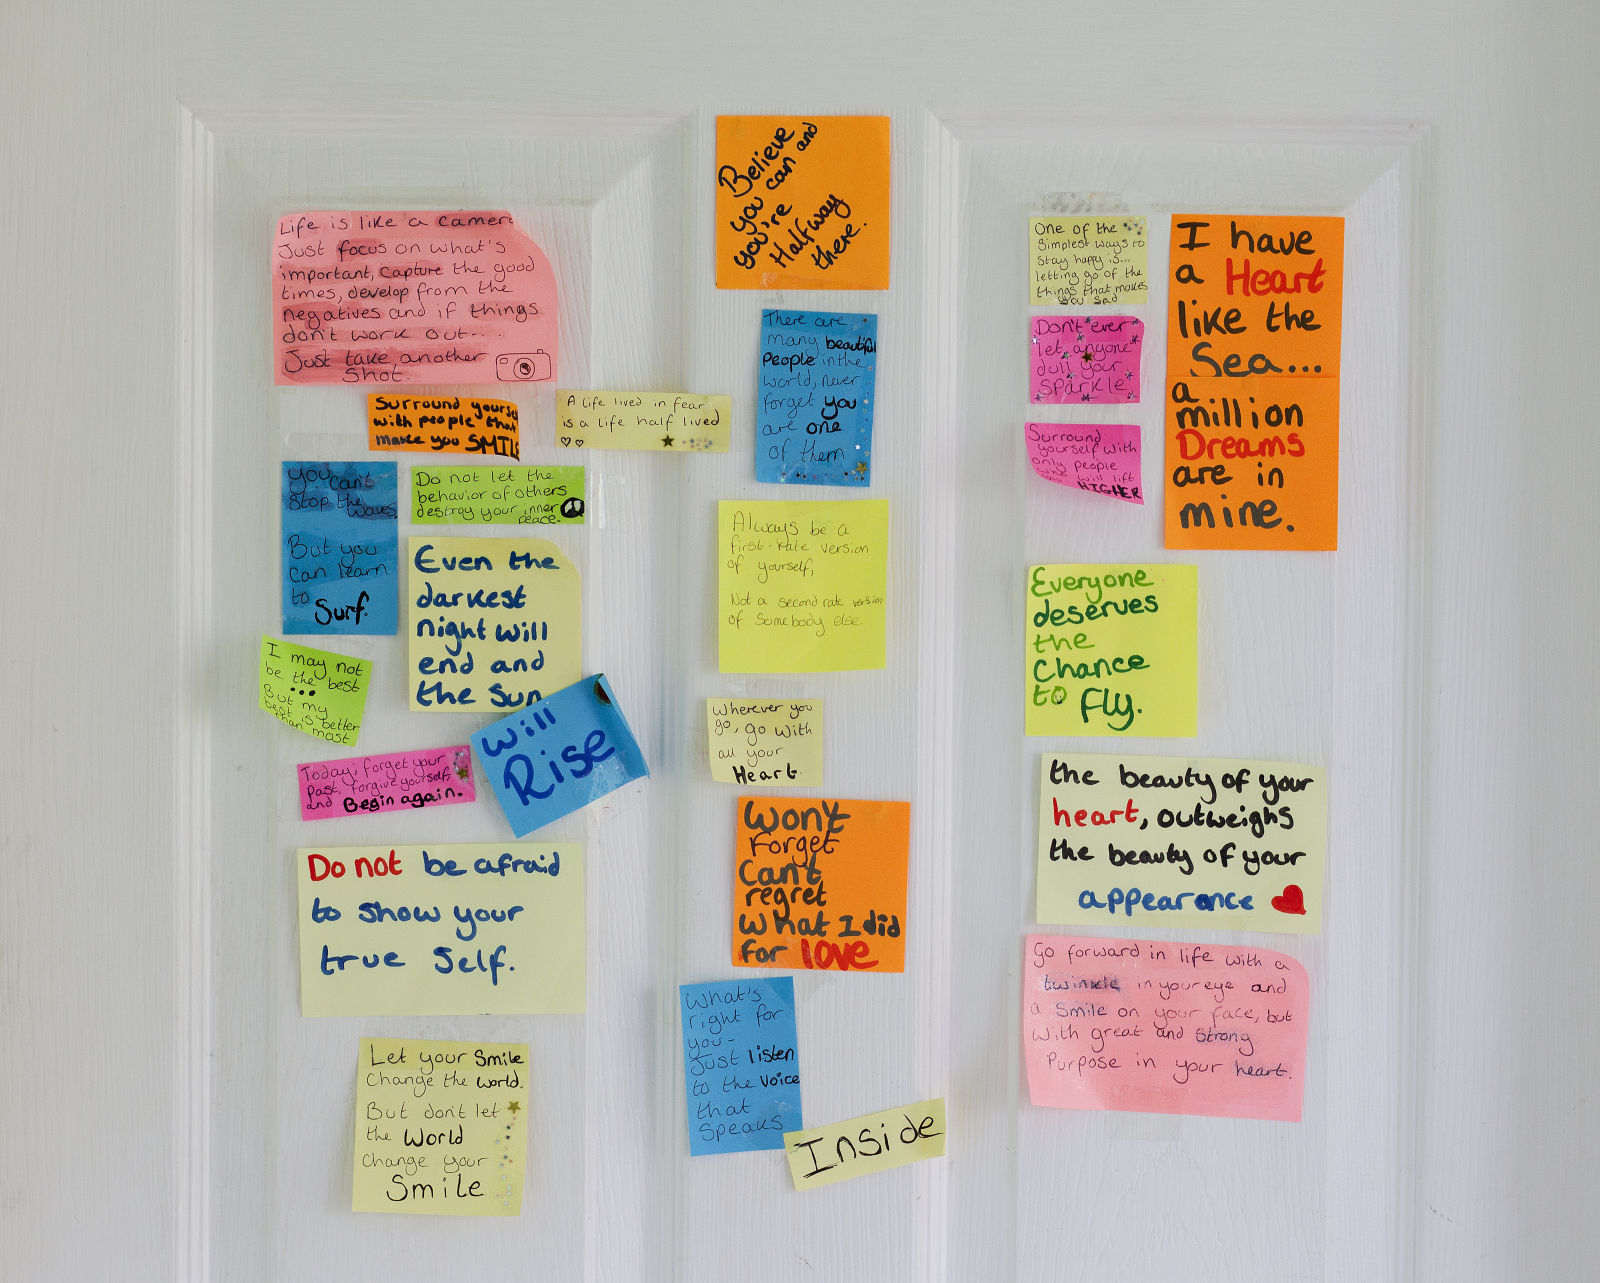 Life is like a camera
Just focus on what's
important, capture the good
times, develop from the
negatives and if things
don't work out...
Just take another
shot.
Surround yourself
with people that
make you SMILE
A life lived in fear
is a life half lived
you can't
stop the waves
But you
can learn
to
Surf.
Do not let the
behavior of others
destroy your inner
peace.
Even the
darkest
night will
end and
the Sun
will
Rise
I may not
be the best
...
But my
best is better
than most
Today; forget your
past, forgive yourself,
and Begin again.
Do not be afraid
to show your
true Self.
Let your Smile
Change the world.
But don't let
the World
change your
Smile
Believe
you can and
you're
Halfway
there.
There are
many beautiful
people in the
world, never
forget you
are one
of them
Always be a
first-rate version
of yourself,
Not a second rate version
of Somebody else.
Wherever you
go, go with
all your
Heart.
Won't
Forget
Can't
regret
What I did
for love
What's
right for
you-
Just listen
to the voice
that
Speaks
Inside
One of the
Simplest ways to
Stay happy is...
letting go of the
things that makes
you sad
Don't ever
let anyone
dull your
SPARKLE
Surround
yourself with
only people
who will lift
you HIGHER
I have
a Heart
like the
Sea...
a
million
Dreams
are in
mine.
Everyone
deserves
the
Chance
to Fly.
the beauty of your
heart, outweighs
the beauty of your
appearance
Go forward in life with a
twinkle in your eye and
a Smile on your face, but
with great and strong
Purpose in your heart.